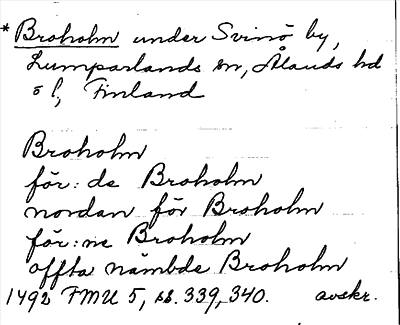 *Broholm under Svinö by,
Lumparlands sn, Ålands hd
o l, Finland
Broholm
för: de Broholm
nordan för Broholm
för: ne Broholm
offta nämbde Broholm
1492 FMU 5, ss. 339, 340. avskr.